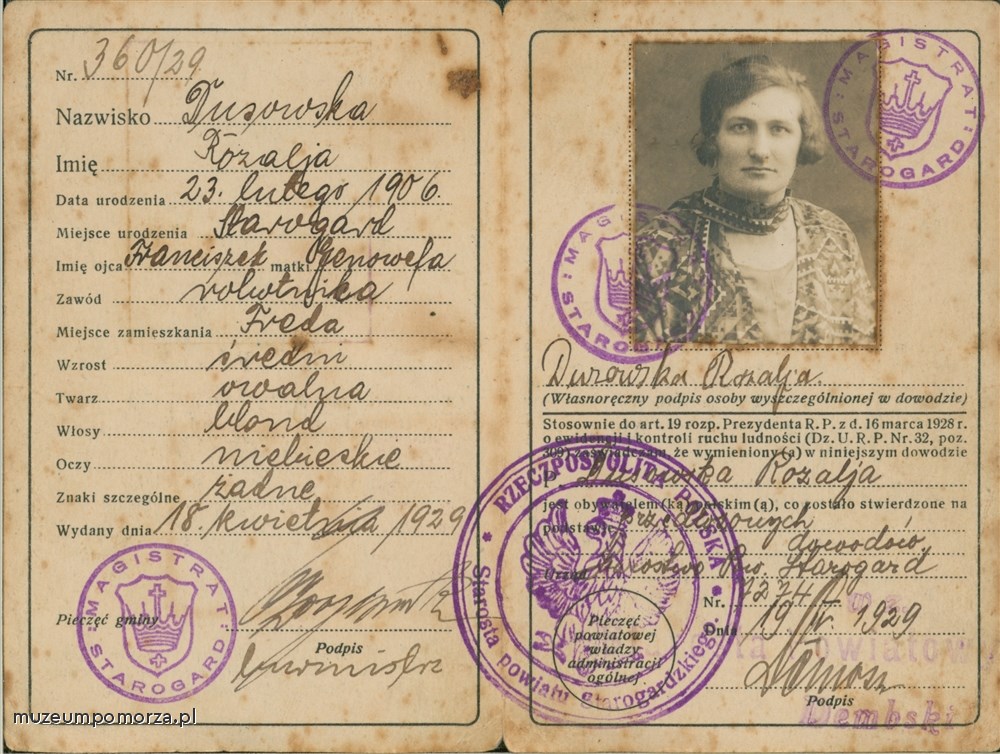 Nr. 360/29
Nazwisko Dusowska
Imię Rozalja
Data urodzenia 23. lutego 1906.
Miejsce urodzenia Starogard
Imię ojca Franciszek matki Genowefa
Zawód robotnica
Miejsce zamieszkania
Wzrost średni
Twarz owalna
Włosy blond
Oczy niebieskie
Znaki szczególne żadne
Wydany dnia 18. kwietnia 1929
MAGISTRAT STAROGARD
Pieczęć gminy
Podpis
burmistrz
muzeumpomorza.pl
MAGISTRAT STAROGARD
MAGISTRAT STAROGARD
Durowska Rozalja.
(Własnoręczny podpis osoby wyszczególnionej w dowodzie)
Stosownie do art. 19 rozp. Prezydenta R. P. z d. 16 marca 1928 r.
o ewidencji i kontroli ruchu ludności (Dz. U. R. P. Nr. 32, poz.
309) zaświadczam, że wymieniony(a) w niniejszym dowodzie
Dusowska Rozalja
jest obywatelem(ką) polskim(ą), co zostało stwierdzone na
podstawie przedłożonych
dowodów.
Urząd Starostwo Pow. Starogard
Nr.
Dnia 19. IV. 1929
RZECZPOSPOLITA POLSKA
Starosta powiatu Starogardzkiego.
Pieczęć
powiatowej
władzy
administracji
ogólnej
Podpis
Dembski